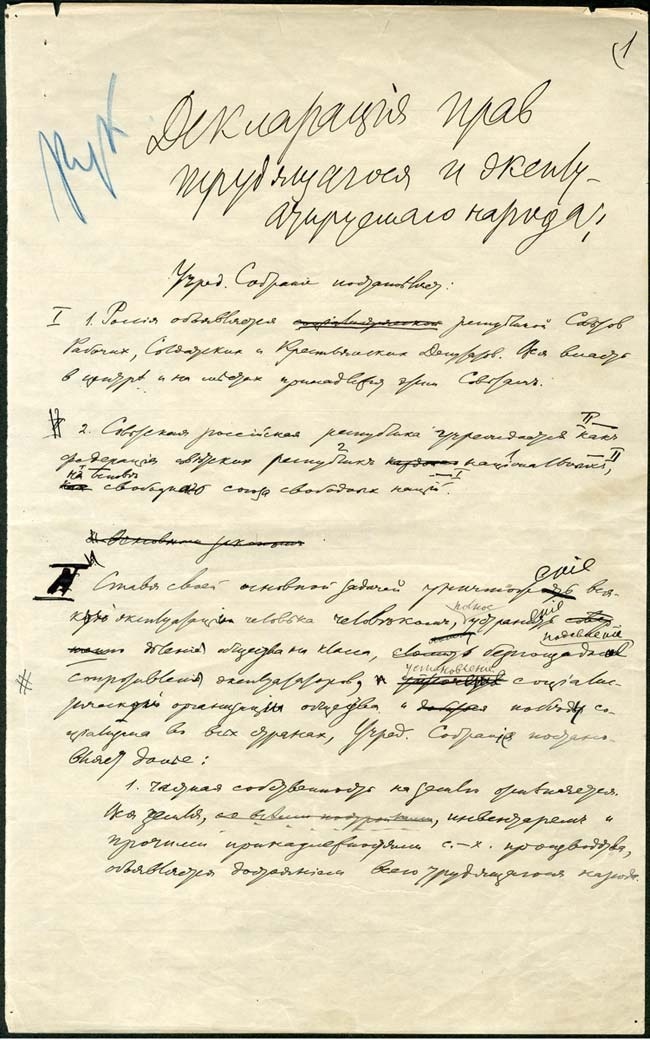 1
Декларація прав
трудящагося и эксплу-
атируемаго народа.
Учред. Собраніе постановляет:
I 1. Россія объявляется республикой Совѣтов
Рабочих, Солдатских и Крестьянских Депутатов. Вся власть
в центрѣ и на мѣстах принадлежит этим Совѣтам.
2. Совѣтская россійская республика учреждается II как
федерація совѣтских республик національных, II
на основѣ свободнаго союза свободных націй. I
II Ставя своей основной задачей уничтоженіе вся-
кой эксплуатаціи человѣка человѣком, полное устраненіе
дѣленія общества на классы, безпощадное подавленіе
сопротивленія эксплуататоров, установленіе соціалис-
тической организаціи общества и побѣду со-
ціализма во всѣх странах, Учред. Собраніе постано-
вляет далѣе:
1. Частная собственность на землю отмѣняется.
Вся земля, со всѣми постройками, инвентарем и
прочими принадлежностями с.-х. производства,
объявляется достояніем всего трудящагося народа.